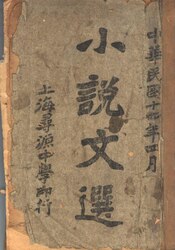 中華民國十四年四月
小說文選
上海尋源中學印行